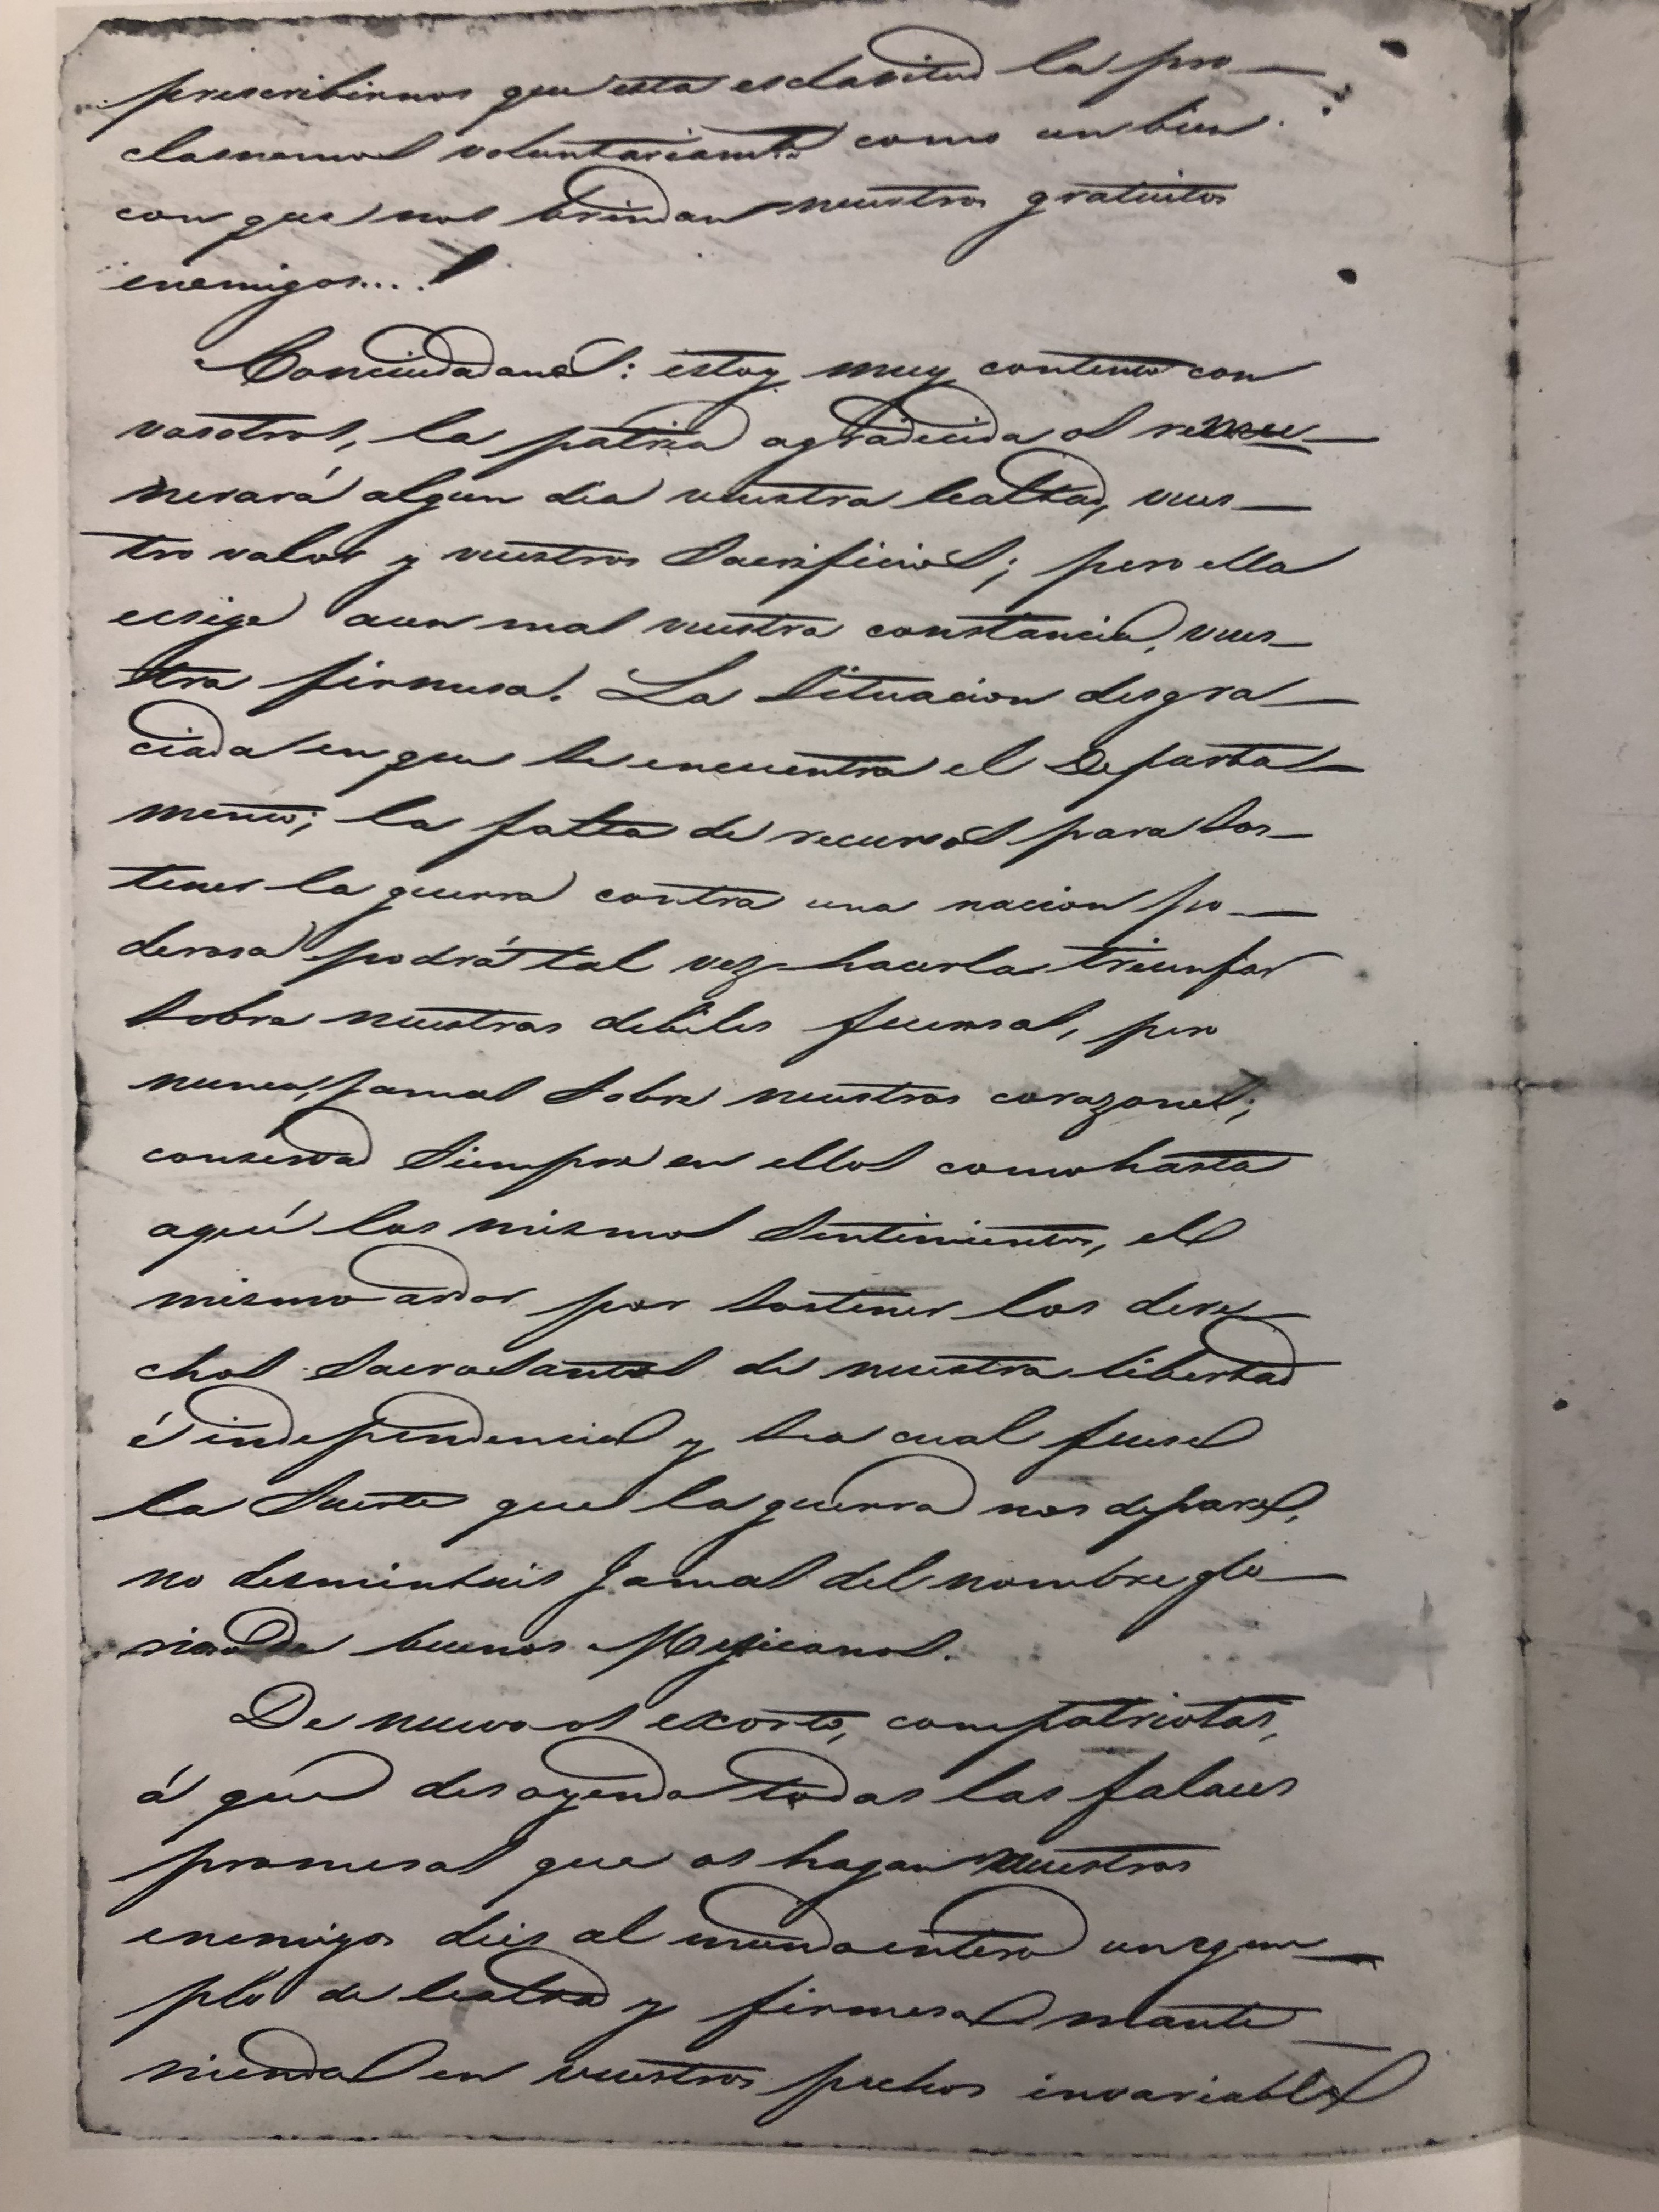 prescribirnos que esta esclavitud la pro-
clamemos voluntariamte. como un bien
con que nos brindan nuestros gratuitos
enemigos....!
Conciudadanos: estoy muy contento con
vosotros, la patria agradecida os remu-
nerará algun dia vuestra lealtad, vues-
tro valor y vuestros sacrificios; pero ella
ecsige aun mas vuestra constancia, vues-
tra firmesa. La situacion desgra-
ciada en que se encuentra el Departa-
mento; la falta de recursos para sos-
tener la guerra contra una nacion po-
derosa podrá tal vez hacerla triunfar
sobre nuestras debiles fuersas, pero
nunca, jamas sobre nuestros corazones;
conservad siempre en ellos como hasta
aquí los mismos sentimientos, el
mismo ardor por sostener los dere-
chos sacrosantos de nuestra libertad
é independencia y sea cual fuese
la suerte que la guerra nos depare,
no desmintais jamas del nombre glo-
rioso de buenos Mejicanos.
De nuevo os excorto, compatriotas,
á que desoyendo todas las falaces
promesas que os hagan nuestros
enemigos deis al mundo entero un ejem-
plo de lealtad y firmesa mante
niendo en vuestros pechos invariable